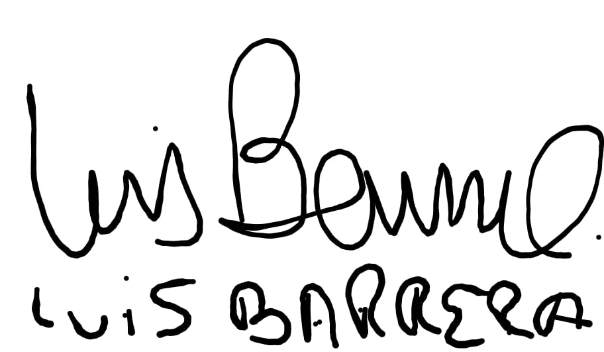 Luis Barrera
LUiS BARRERA